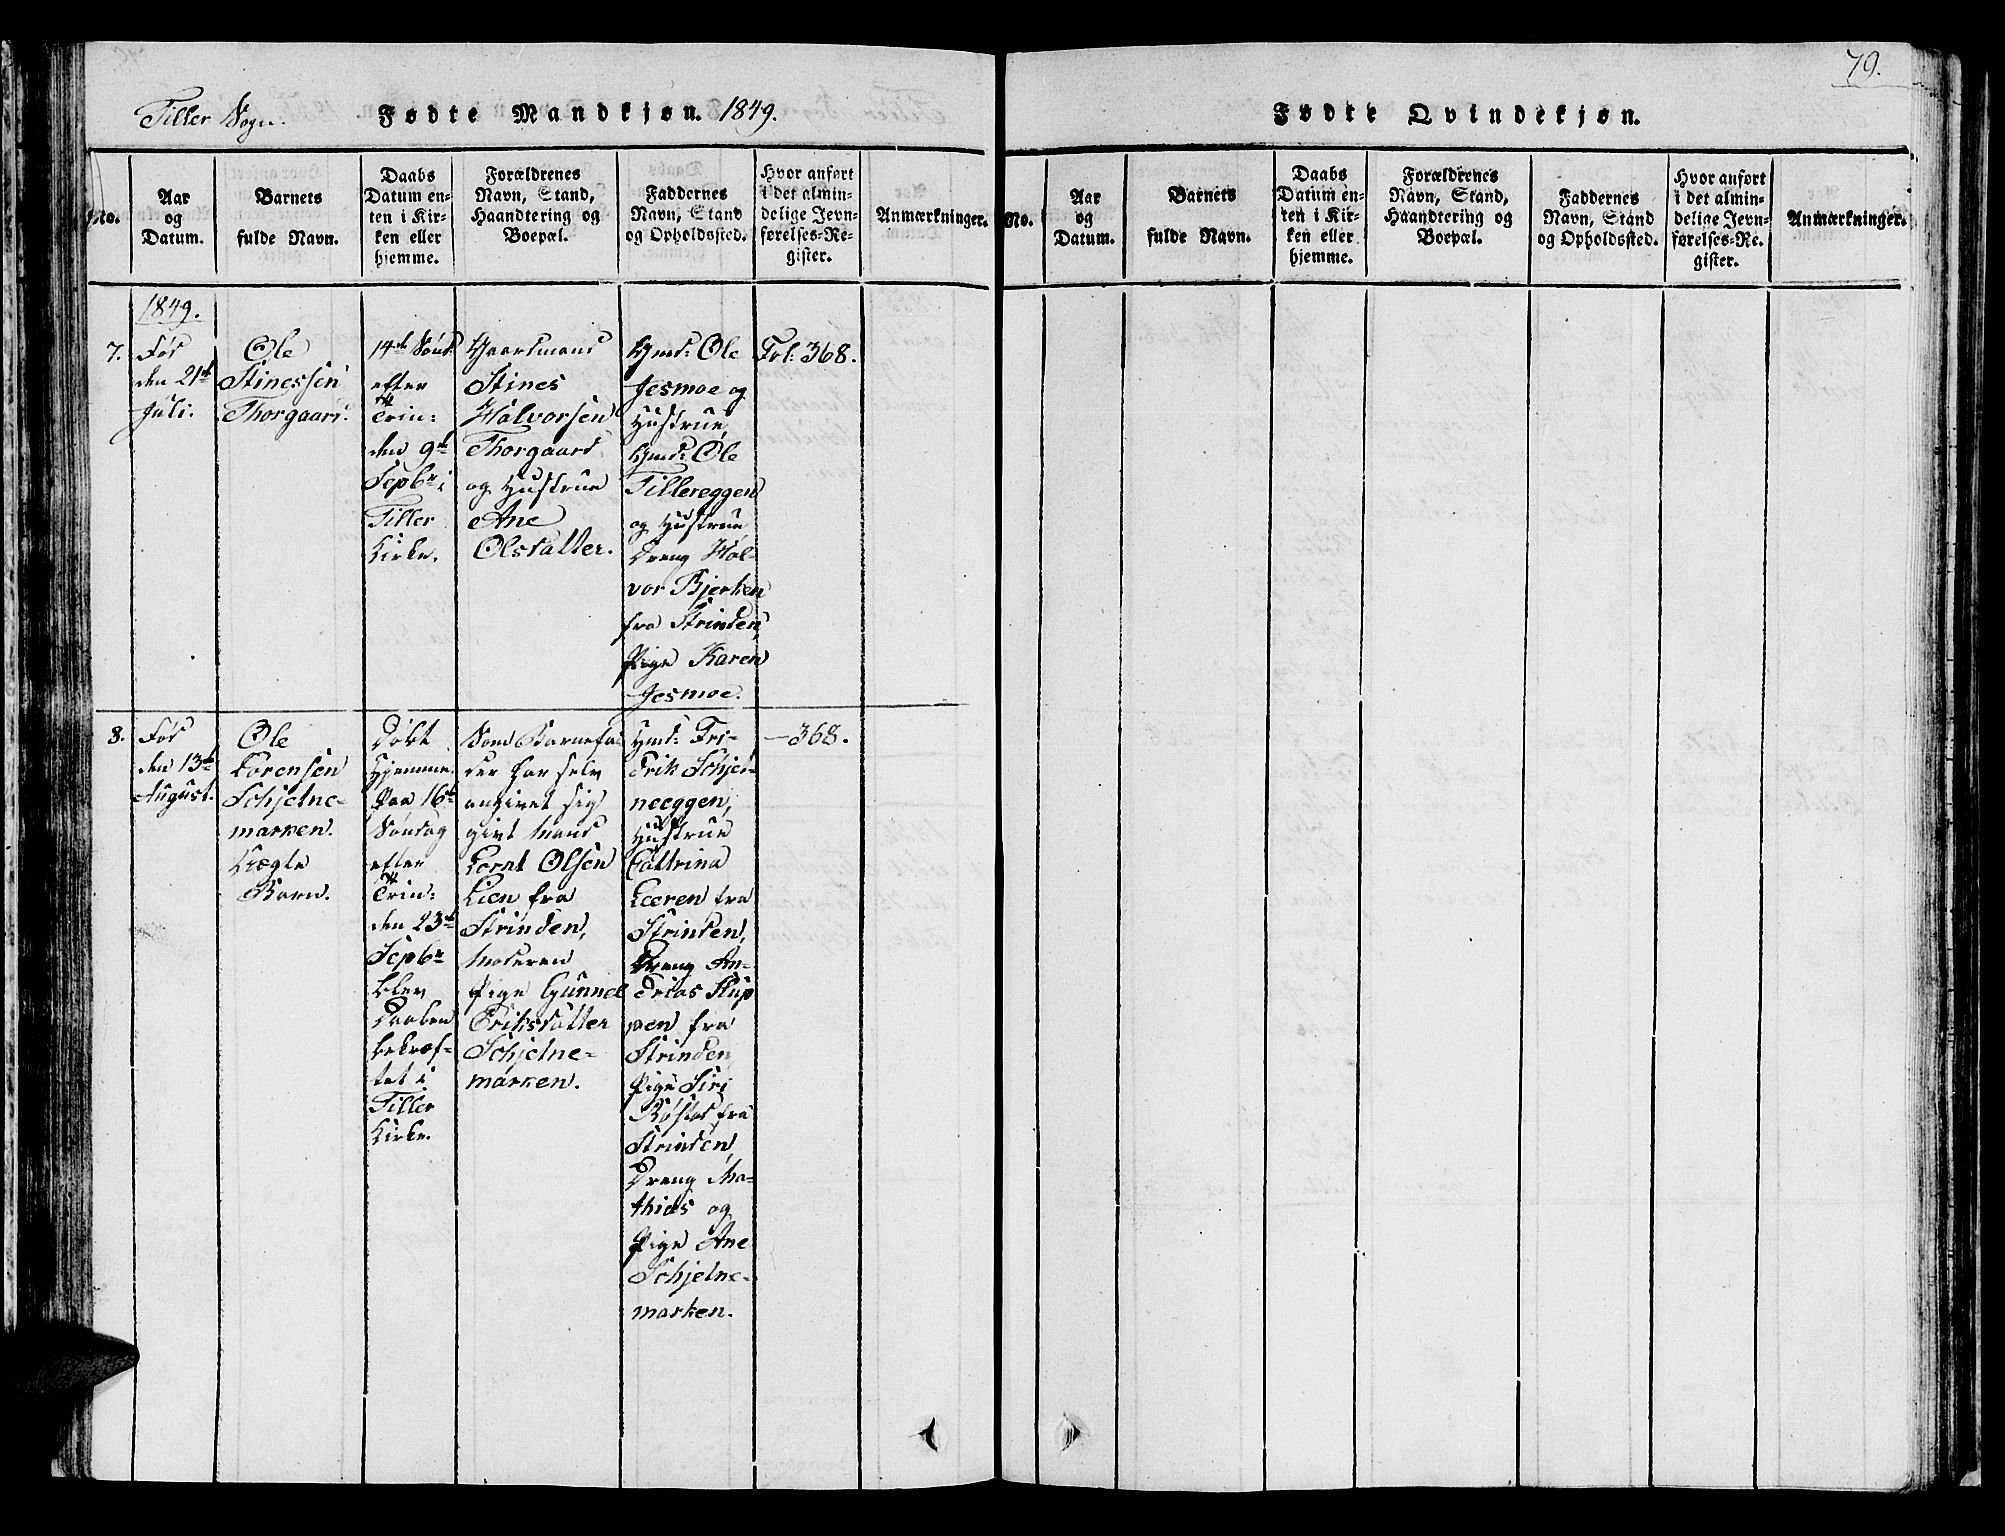 79.
Tiller Sogn. Fødte Mandkjøn. 1849.
No.
Aar
og
Datum.
Barnets
fulde Navn.
Daabs
Datum en-
ten i Kir-
ken eller
hjemme.
Forældrenes
Navn, Stand,
Haandtering og
Boepæl.
Faddernes
Navn, Stand
og Opholdssted.
Hvor anført
i det almin-
delige Jevn-
førelses-Re-
gister.
Anmærkninger.
1849.
7.
Fød
den 21de
Juli.
Ole
Stinessen
Thorgaard.
14de Sønd:
efter
Trin:
den 9de
Sepbr i
Tiller
Kirke.
Gaardmand
Stines
Halvorsen
Thorgaard
og Hustrue
Ane
Olsdatter.
Gmd: Ole
Jesmoe og
Hustrue,
Gmd: Ole
Tillereggen
og Hustrue
Dreng Hal-
vor Bjerken
fra Strinden,
Pige Karen
Jesmoe.
Fol: 368.
8.
Fød
den 13de
August.
Ole
Lorensen
Schjelne-
marken.
Uægte
Barn.
Døbt
Hjemme.
Paa 16de
Søndag
efter
Trin:
den 23de
Sepbr
blev
Daaben
bekræf-
tet i
Tiller
Kirke.
Som Barnefa-
der har selv
angivet sig
givt Mand
Lornt Olsen
Lien fra
Strinden,
Moderen
Pige Gunnel
Eriksdatter
Schjelne-
marken.
Gmd: Fri-
drik Schjel-
neeggen,
Hustrue
Cattrina
Leeren fra
Strinden,
Dreng An-
drias Slup
pen fra
Strinden
Pige Siri
Røstad fra
Strinden,
Dreng Ma-
thias og
Pige Ane
Schjelne-
marken.
— 368.
Fødte Qvindekjøn.
No.
Aar
og
Datum.
Barnets
fulde Navn.
Daabs
Datum en-
ten i Kir-
ken eller
hjemme.
Forældrenes
Navn, Stand,
Haandtering og
Boepæl.
Faddernes
Navn, Stand
og Opholdssted.
Hvor anført
i det almin-
delige Jevn-
førelses-Re-
gister.
Anmærkninger.